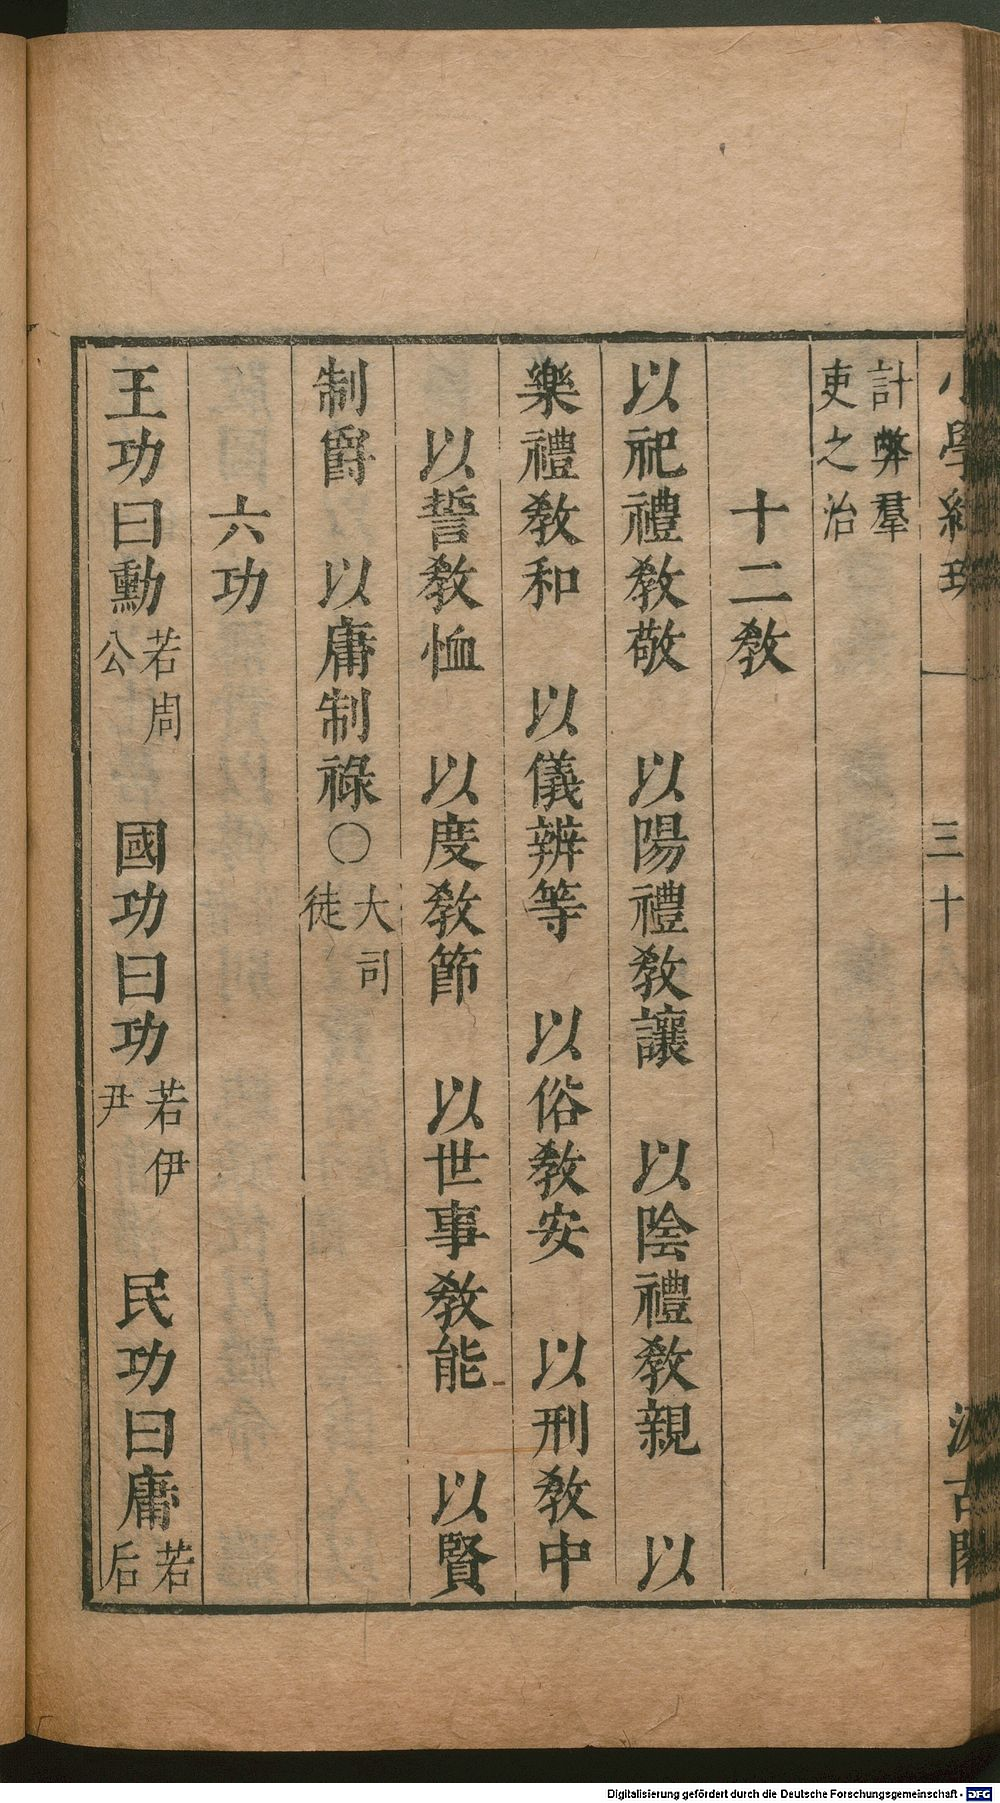 計弊羣
吏之治
十二敎
以祀禮敎敬　以陽禮敎讓　以陰禮敎親　以
樂禮敎和　以儀辨等　以俗敎安　以刑敎中
以誓敎恤　以度敎節　以世事敎能　以賢
制爵　以庸制祿〇大司徒
六功
王功曰勳若周公　國功曰功若伊尹　民功曰庸若后
Digitalisierung gefördert durch die Deutsche Forschungsgemeinschaft - DFG